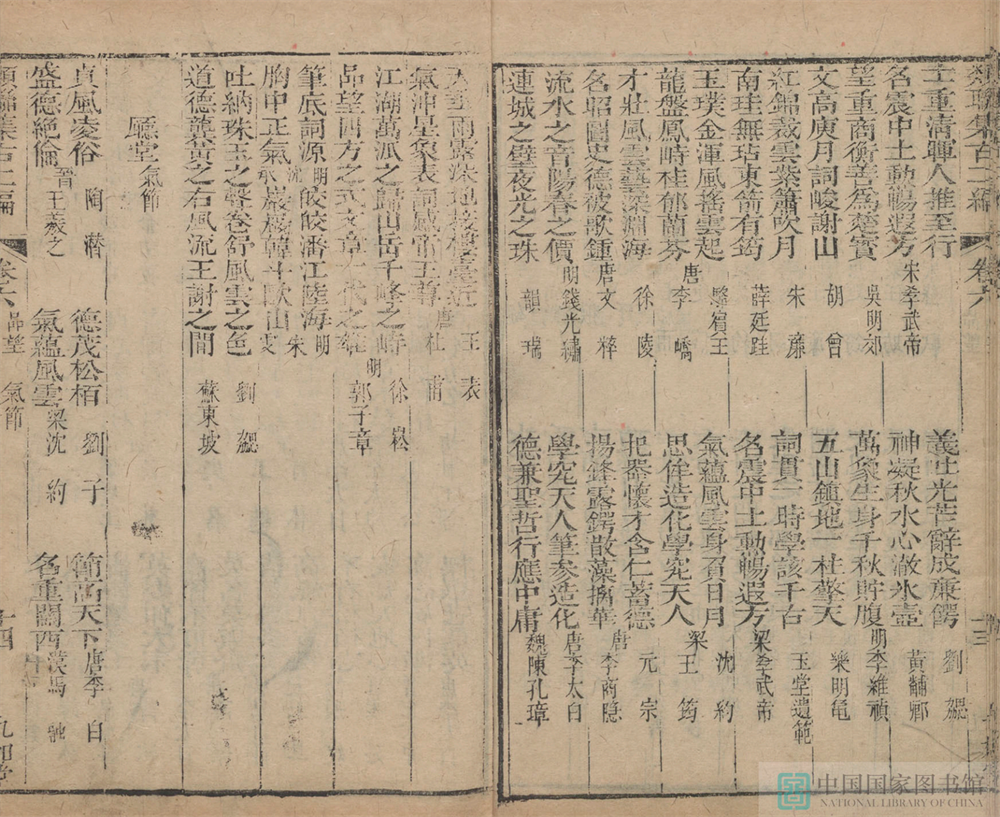 士重清暉人推至行
名震中土動暢遐方 宋孝武帝
望重商衡善爲楚寳 吳明郊
文高庾月詞峻謝山 胡曾
紅錦裁雲紫簫吹月 朱廉
南珪無玷東箭有筠 薛廷珪
玉璞金渾風搖雲起 駱賓王
龍盤鳳時桂郁蘭芬 唐李嶠
才壯風雲藝深淵海 徐陵
名昭圖史德被歌鍾 唐文粹
流水之音陽春之價 明錢光繡
連城之璧夜光之珠 韻瑞
義吐光芒辭成廉鍔 劉勰
神凝秋水心澈氷壺 黃黼鄉
萬象生身千秋貯腹 明李維禎
五山鎮地一柱擎天 樂明龜
詞貫一時學該千古 玉堂遺範
名震中土動暢遐方 梁孝武帝
氣蘊風雲身負日月 沈約
思侔造化學究天人 梁王筠
把器懷才含仁蓄德 元宗
揚鋒露鍔散藻摛華 唐李商隱
學究天人筆參造化 唐李太白
德兼聖哲行應中庸 魏陳孔璋
雨露深地接樓臺近 王表
氣沖星象表詞感帝王尊 唐杜甫
江湖萬派之歸山岳千峰之峙 徐崧
品望四方之式文章一代之宗 明郭子章
筆底詞源皎皎潘江陸海 明
胸中正氣巖巖韓斗歐山 宋
吐納珠玉之聲卷舒風雲之色 劉勰
道德龔黃之右風流王謝之間 蘇東坡
廳堂氣節
真風凌俗 陶潛
德茂松栢 劉子
節高天下 唐李白
盛德絶倫 晉王羲之
氣蘊風雲 梁沈約
名重關西 漢馬融
類聯集古二編 卷六 品望 氣節 十四